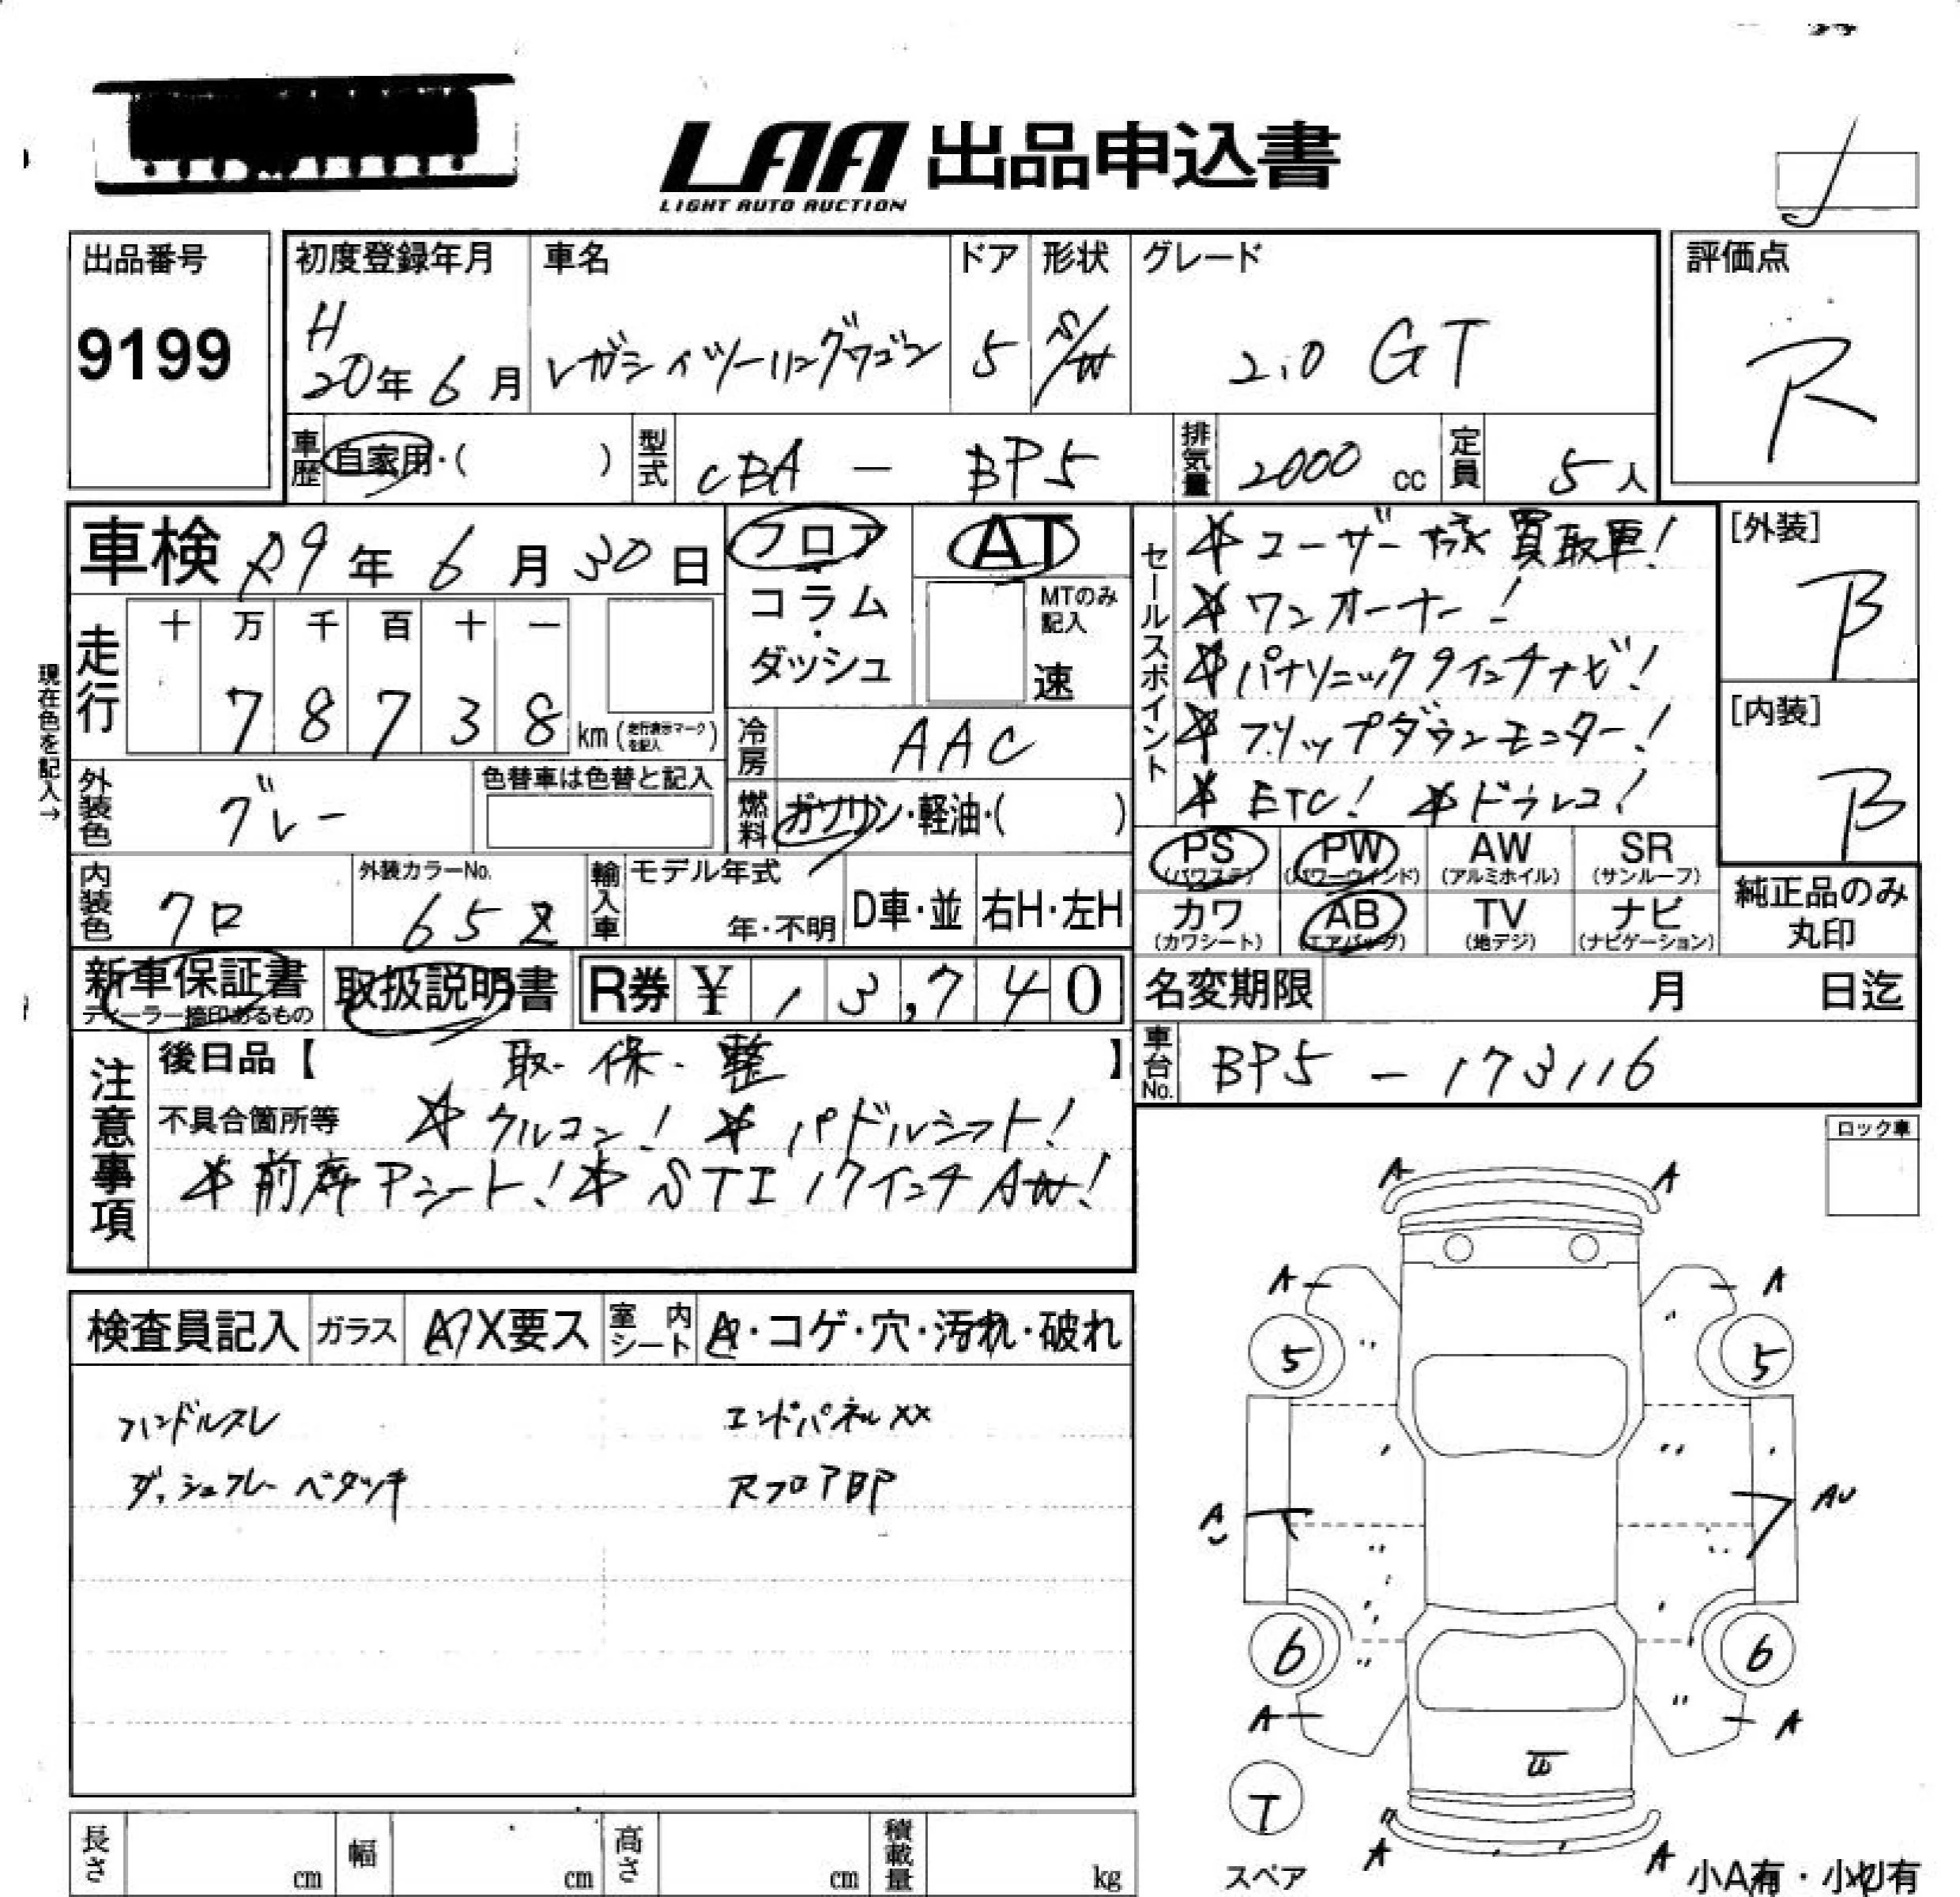 LAA 出品申込書
LIGHT AUTO AUCTION
出品番号
9199
初度登録年月
H
20年 6月
車名
レガシィツーリングワゴン
ドア
5
形状
S/W
グレード
2.0 GT
評価点
R
車歴
自家用・( )
型式
CBA - BP5
排気量
2000 cc
定員
5人
車検 R9年 6月 30日
フロア・コラム・ダッシュ
AT
MTのみ記入
速
セールスポイント
* ユーザー様買取車!
* ワンオーナー!
* パナソニック9インチナビ!
* フリップダウンモニター!
* ETC! * ドラレコ!
[外装]
B
[内装]
B
現在色を記入→
走行
十 万 千 百 十 一
7 8 7 3 8 km (走行表示マークを記入)
冷房
AAC
外装色
グレー
色替車は色替と記入
燃料
ガソリン・軽油・( )
PS (パワステ)
PW (パワーウインド)
AW (アルミホイル)
SR (サンルーフ)
カワ (カワシート)
AB (エアバッグ)
TV (地デジ)
ナビ (ナビゲーション)
純正品のみ丸印
内装色
クロ
外装カラーNo.
652
輸入車
モデル年式
年・不明
D車・並
右H・左H
新車保証書
ディーラー捺印あるもの
取扱説明書
R券 ¥ 13,740
名変期限 月 日迄
車台No.
BP5 - 173116
注意事項
後日品【 取・保・整 】
不具合箇所等 * クルコン! * パドルシフト!
* 前席Pシート! * STI 17インチAW!
ロック車
検査員記入
ガラス
A X要ス
室内シート
A・コゲ・穴・汚れ・破れ
ハンドルスレ
エンドパネルXX
ダッシュフレーベタツキ
RフロアBP
A A
A A
5 5
A AU
6 6
A A
T
スペア
A A
小A有・小U有
長さ cm
幅 cm
高さ cm
積載量 kg